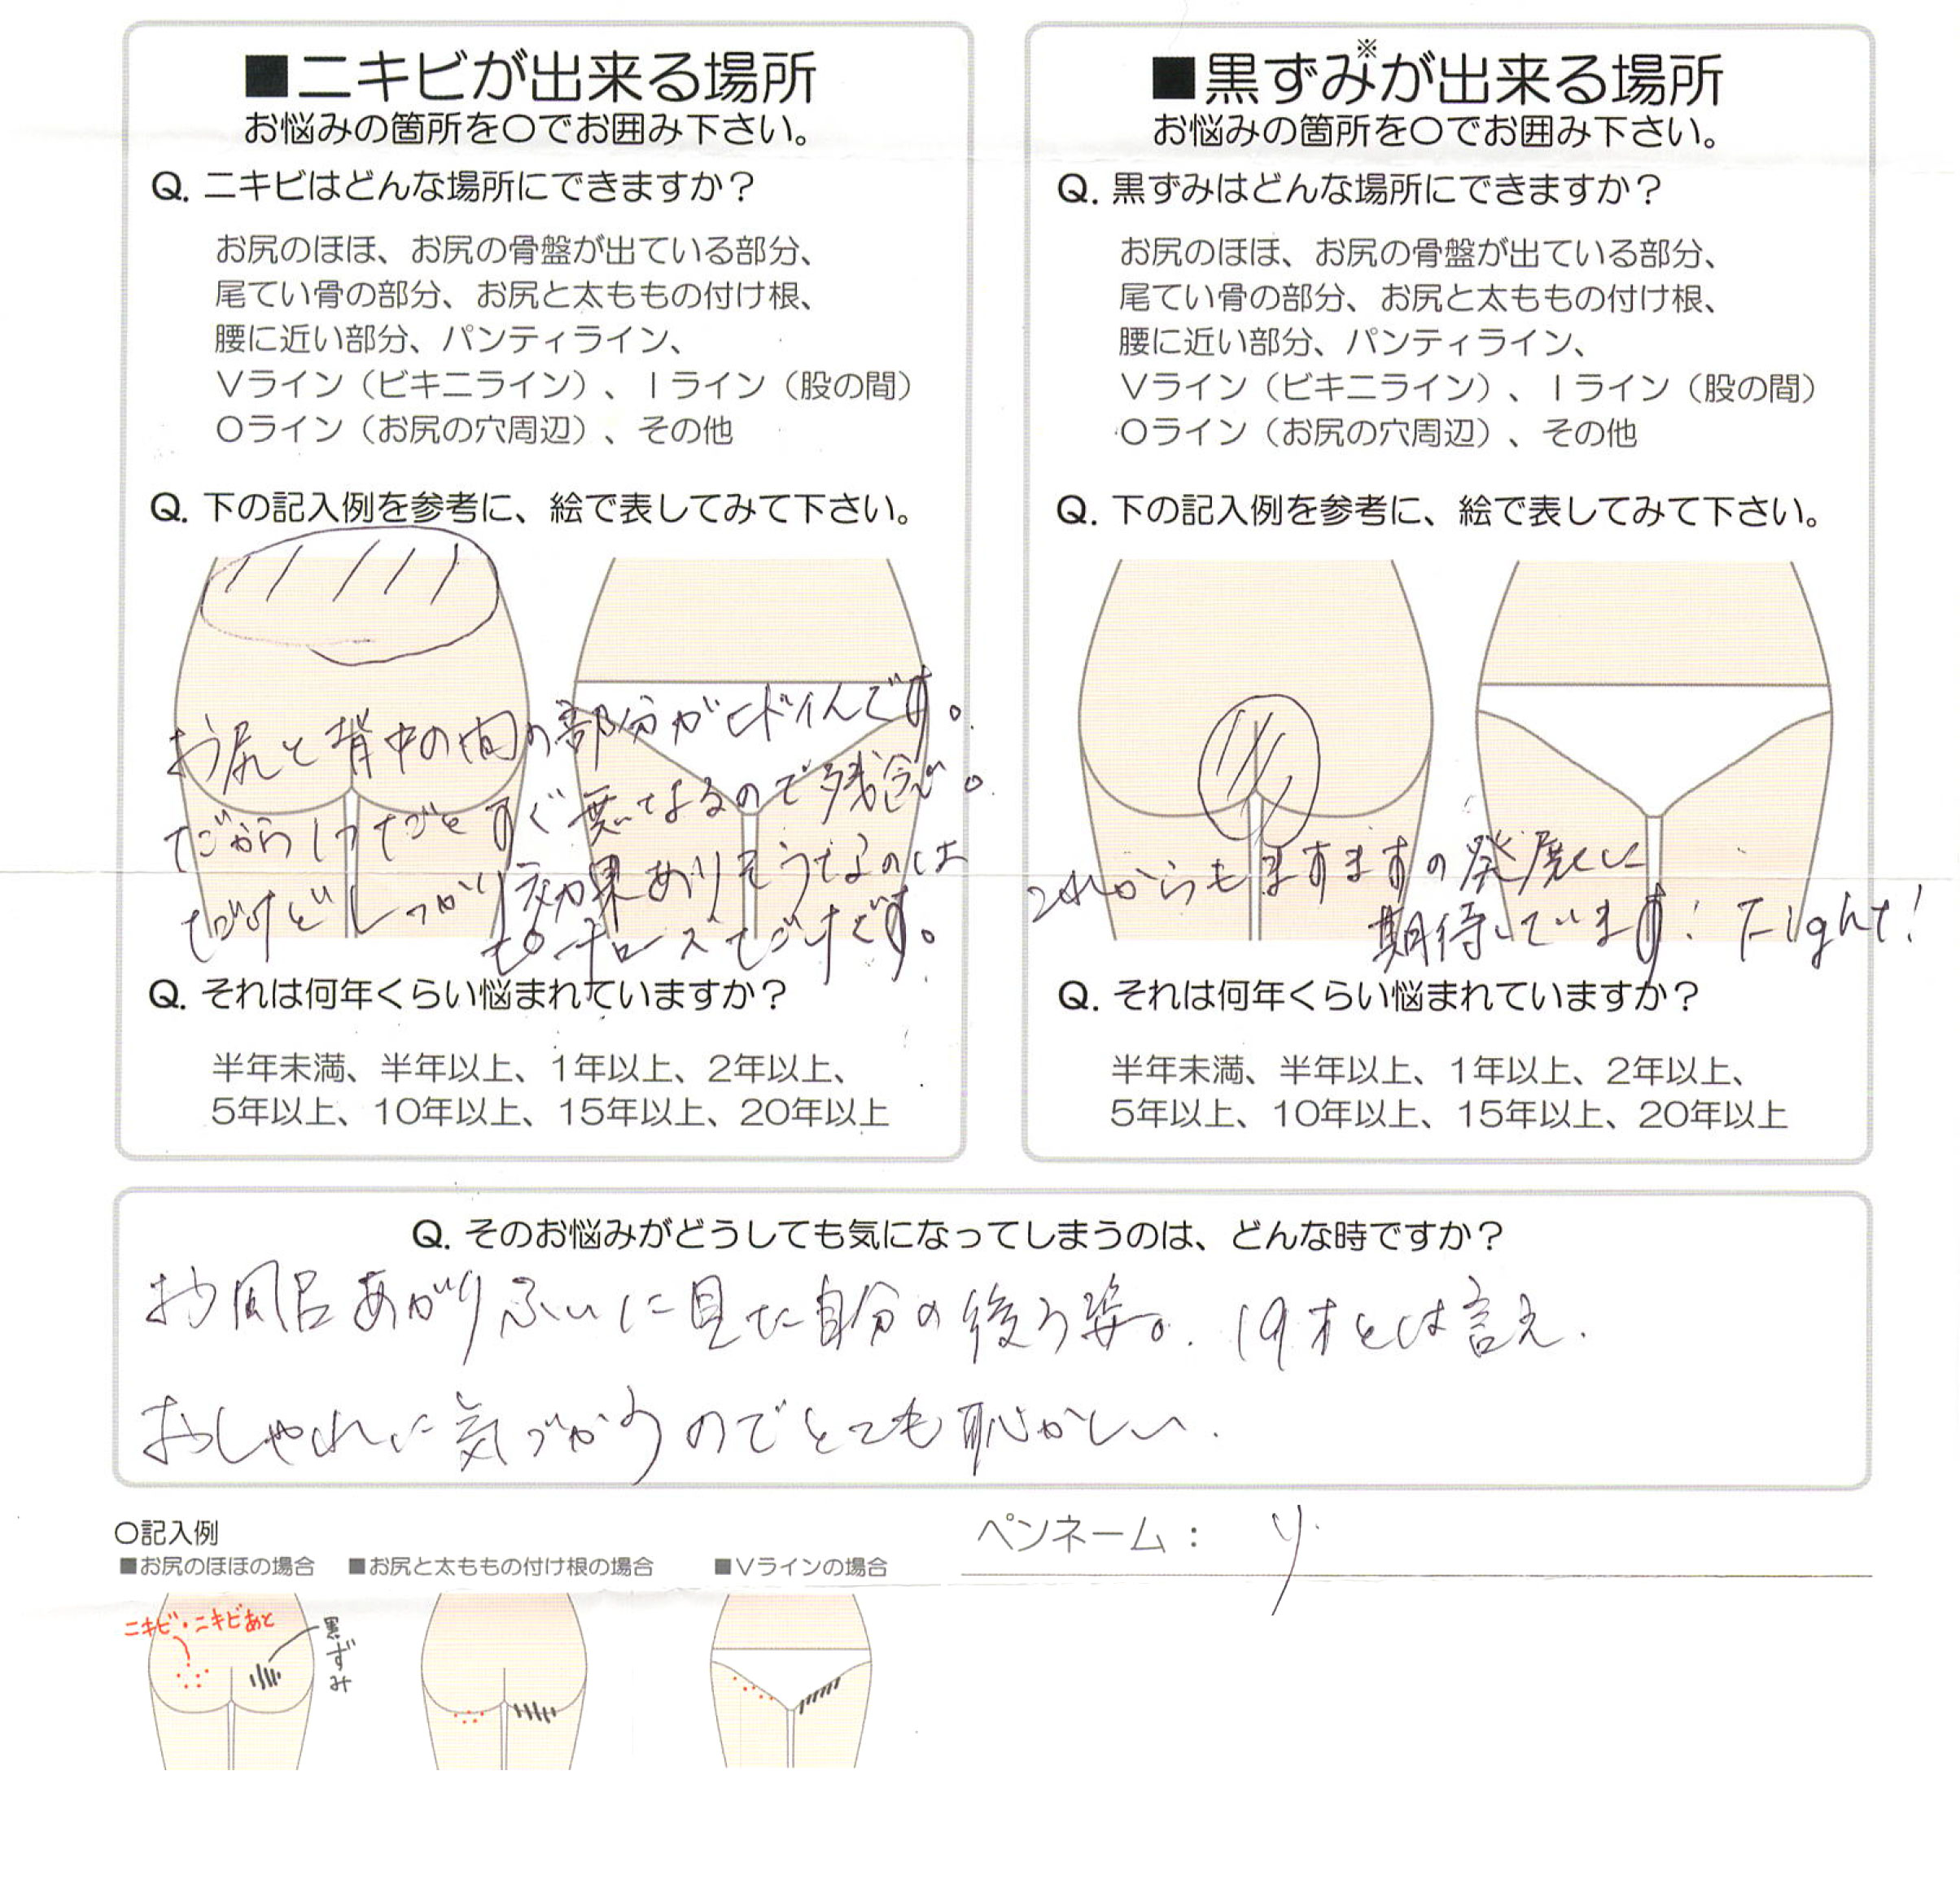 ■ニキビが出来る場所
お悩みの箇所を〇でお囲み下さい。
Q. ニキビはどんな場所にできますか？
お尻のほほ、お尻の骨盤が出ている部分、
尾てい骨の部分、お尻と太ももの付け根、
腰に近い部分、パンティライン、
Vライン（ビキニライン）、Iライン（股の間）
Oライン（お尻の穴周辺）、その他
Q. 下の記入例を参考に、絵で表してみて下さい。
お尻と背中の間の部分がヒドイんです。
だからしつだとすぐ無くなるので残念。
だけどしっかり効果ありそうなのは
ピーチローズだけです。
Q. それは何年くらい悩まれていますか？
半年未満、半年以上、1年以上、2年以上、
5年以上、10年以上、15年以上、20年以上
■黒ずみ※が出来る場所
お悩みの箇所を〇でお囲み下さい。
Q. 黒ずみはどんな場所にできますか？
お尻のほほ、お尻の骨盤が出ている部分、
尾てい骨の部分、お尻と太ももの付け根、
腰に近い部分、パンティライン、
Vライン（ビキニライン）、Iライン（股の間）
Oライン（お尻の穴周辺）、その他
Q. 下の記入例を参考に、絵で表してみて下さい。
これからもますますの発展に
期待しています! Fight!
Q. それは何年くらい悩まれていますか？
半年未満、半年以上、1年以上、2年以上、
5年以上、10年以上、15年以上、20年以上
Q. そのお悩みがどうしても気になってしまうのは、どんな時ですか？
お風呂あがりふいに見た自分の後ろ姿。19才とは言え.
おしゃれに気づかうのでとても恥かしい.
〇記入例
■お尻のほほの場合 ■お尻と太ももの付け根の場合 ■Vラインの場合
ペンネーム： り
ニキビ・ニキビあと
黒ずみ